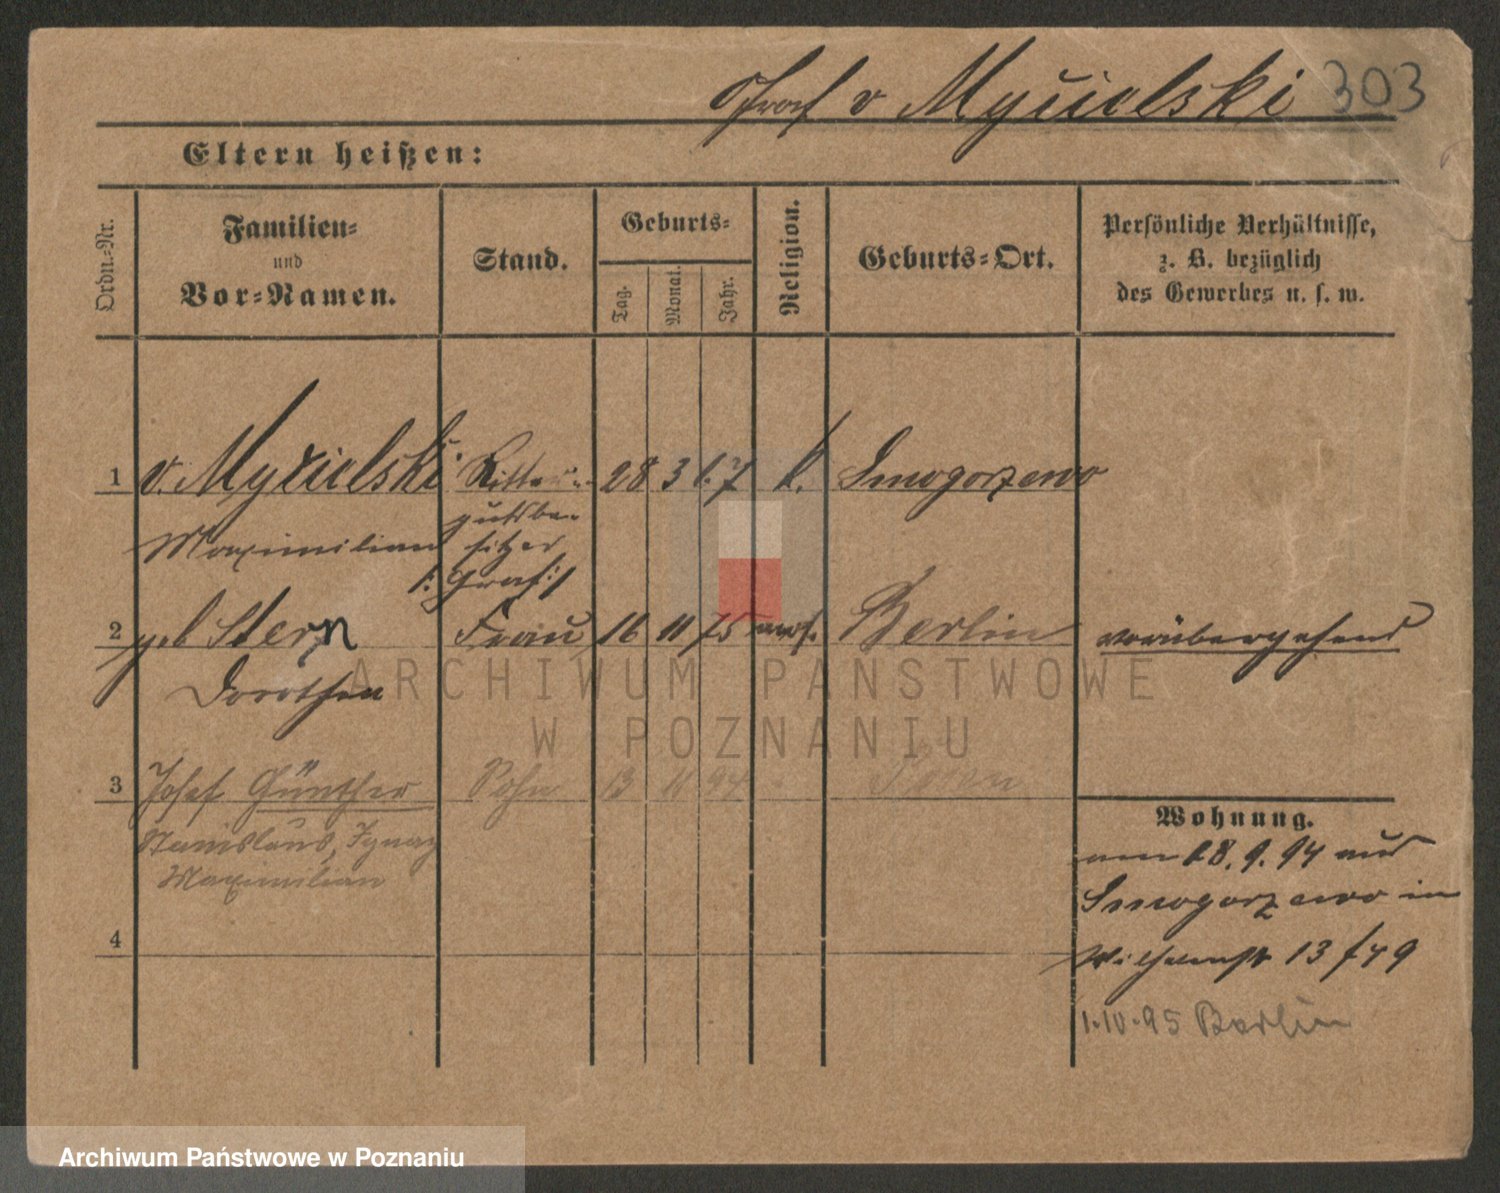 Graf v Mycielski 303
Eltern heißen:
Ordn.-Nr.
Familien-
und
Vor-Namen.
Stand.
Geburts-
Tag.
Monat.
Jahr.
Religion.
Geburts-Ort.
Persönliche Verhältnisse,
z. B. bezüglich
des Gewerbes u. s. w.
1 v. Mycielski Ritter- 28 3 67 k. Smogorzewo
gutsbe-
Maximilian sitzer
/: Graf :/
2 geb Stern Frau 16 11 75 mos. Berlin vorübergehend
Dorothea
ARCHIWUM PAŃSTWOWE
W POZNANIU
3 Josef Günther Sohn 13 11 94 Posen
Stanislaus, Ignaz
Maximilian
4
Wohnung.
am 18.9.94 aus
Smogorzewo in
Wilhelmstr 13 f 49
1.10.95 Berlin
Archiwum Państwowe w Poznaniu